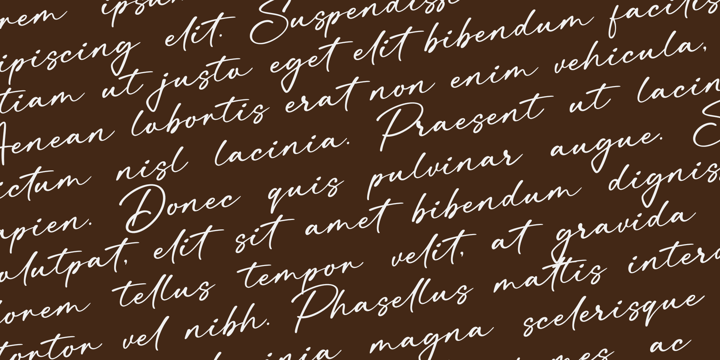 rem ipsum
ipiscing elit. Suspendisse
tiam ut justo eget elit bibendum facilis
Aenean lobortis erat non enim vehicula,
ictum nisl lacinia. Praesent ut lacin
apien. Donec quis pulvinar augue. S
olutpat, elit sit amet bibendum dignis
orem tellus tempor velit, at gravida
tortor vel nibh. Phasellus mattis interd
magna scelerisque
ac